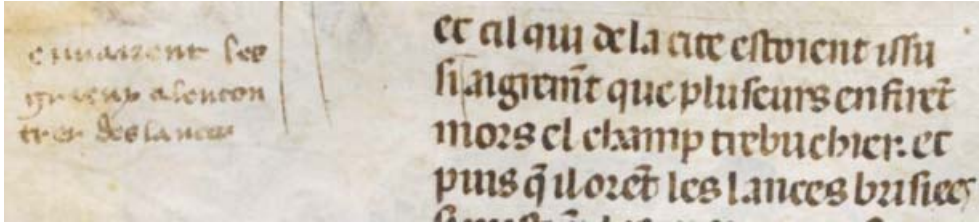 enuairent les
grieux alencon
trer des lances
et cil qui de la cite estoient issu
si aigrem̃t que pluseurs en firẽt
mors el champ trebuchier. et
puis q̃ il orẽt les lances brisiees